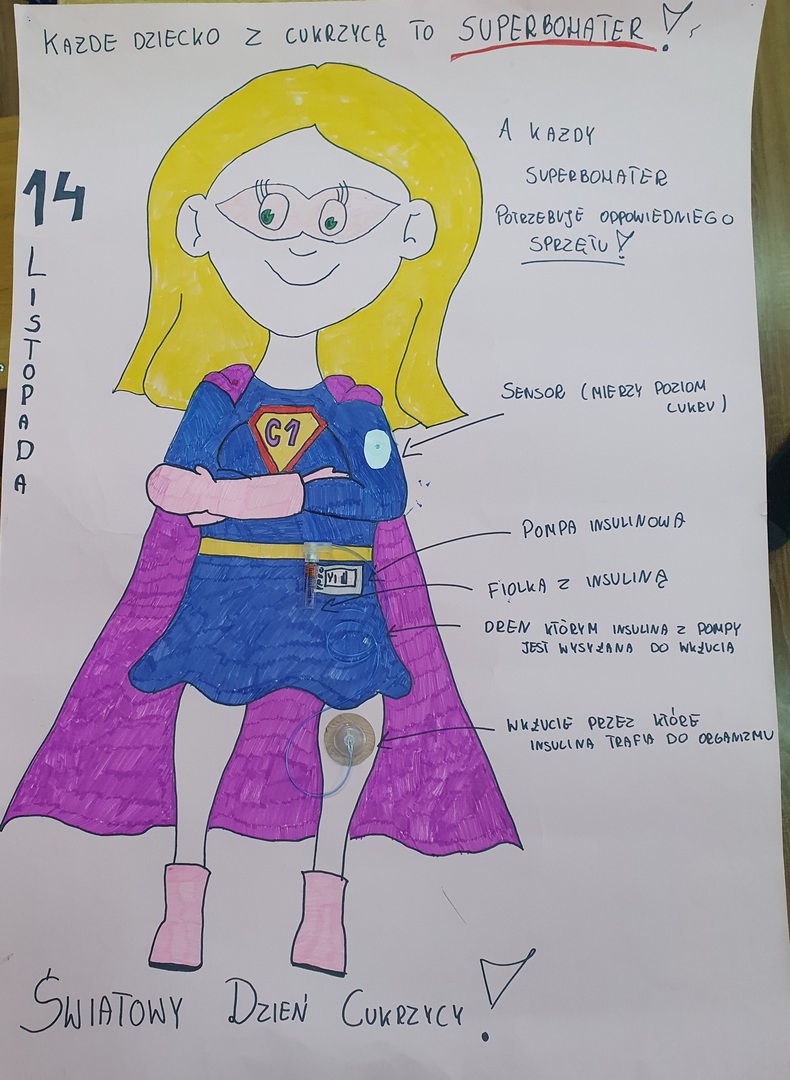 KAŻDE DZIECKO Z CUKRZYCĄ TO SUPERBOHATER!
14
LISTOPADA
A KAŻDY
SUPERBOHATER
POTRZEBUJE ODPOWIEDNIEGO
SPRZĘTU!
SENSOR (MIERZY POZIOM
CUKRU)
C1
POMPA INSULINOWA
FIOLKA Z INSULINĄ
DREN KTÓRYM INSULINA Z POMPY
JEST WYSYŁANA DO WKŁUCIA
WKŁUCIE PRZEZ KTÓRE
INSULINA TRAFIA DO ORGANIZMU
ŚWIATOWY DZIEŃ CUKRZYCY!